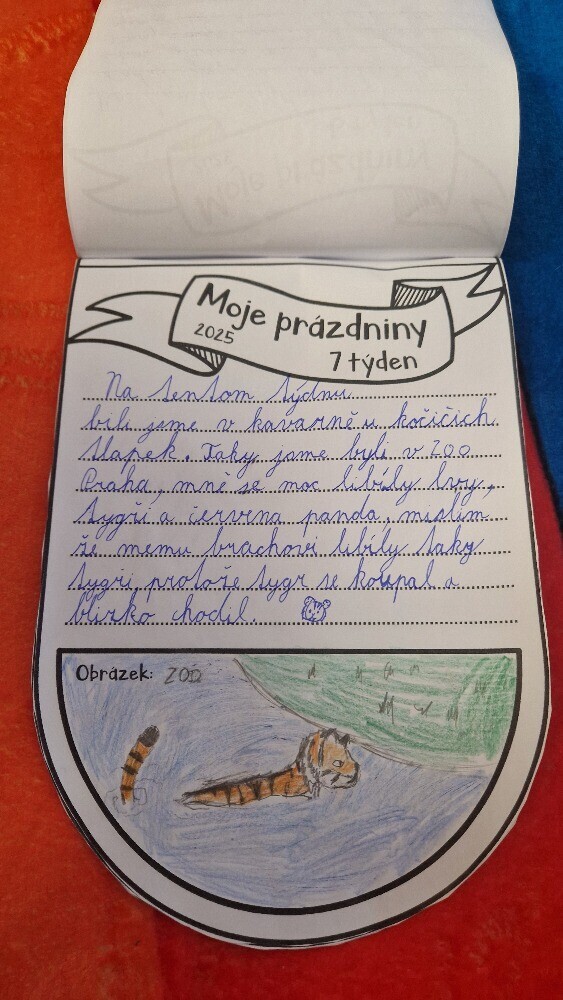 Moje prázdniny
2025
7 týden
Na tentom týdnu
bili jsme v kavarně u kočičich
tlapek. Taky jsme byli v ZOO
Praha, mně se moc libíly lvy,
tygři a červena panda, mislím
že memu brachovi libíly taky
tygři protože tygr se koupal a
blizko chodil.
Obrázek: ZOO